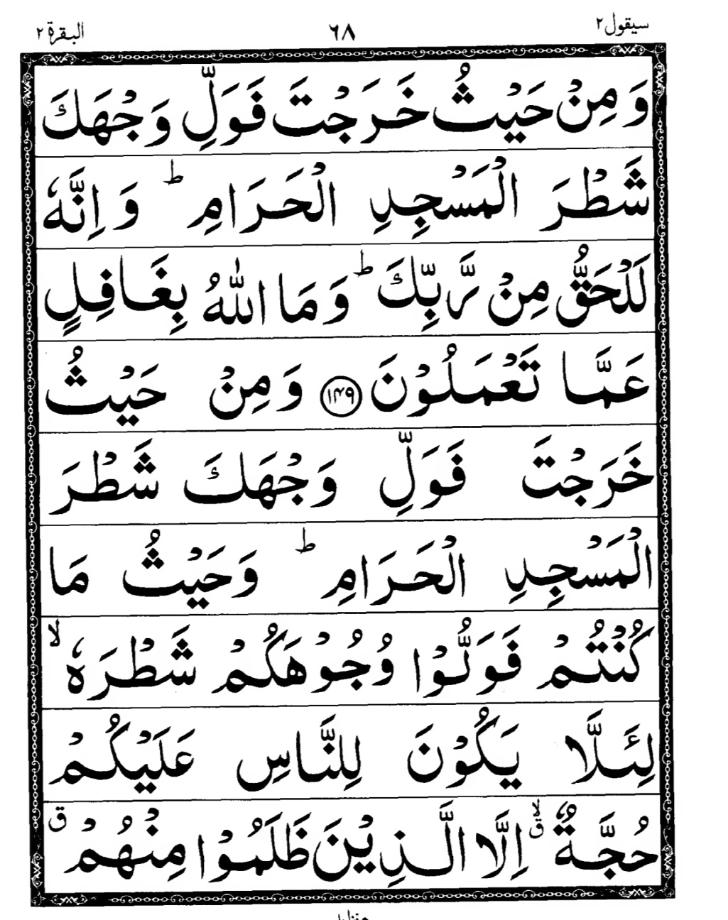 سیقول ۲ ۶۸ البقرة ۲
وَ مِنْ حَيْثُ خَرَجْتَ فَوَلِّ وَجْهَكَ
شَطْرَ الْمَسْجِدِ الْحَرَامِ ؕ وَ اِنَّهٗ
لَلْحَقُّ مِنْ رَّبِّكَ ؕ وَ مَا اللّٰهُ بِغَافِلٍ
عَمَّا تَعْمَلُوْنَ ۱۴۹ وَ مِنْ حَيْثُ
خَرَجْتَ فَوَلِّ وَجْهَكَ شَطْرَ
الْمَسْجِدِ الْحَرَامِ ؕ وَحَيْثُ مَا
كُنْتُمْ فَوَلُّوْا وُجُوْهَكُمْ شَطْرَهٗ ۙ
لِئَلَّا يَكُوْنَ لِلنَّاسِ عَلَيْكُمْ
حُجَّةٌ ۙۗ اِلَّا الَّذِيْنَ ظَلَمُوْا مِنْهُمْ ق